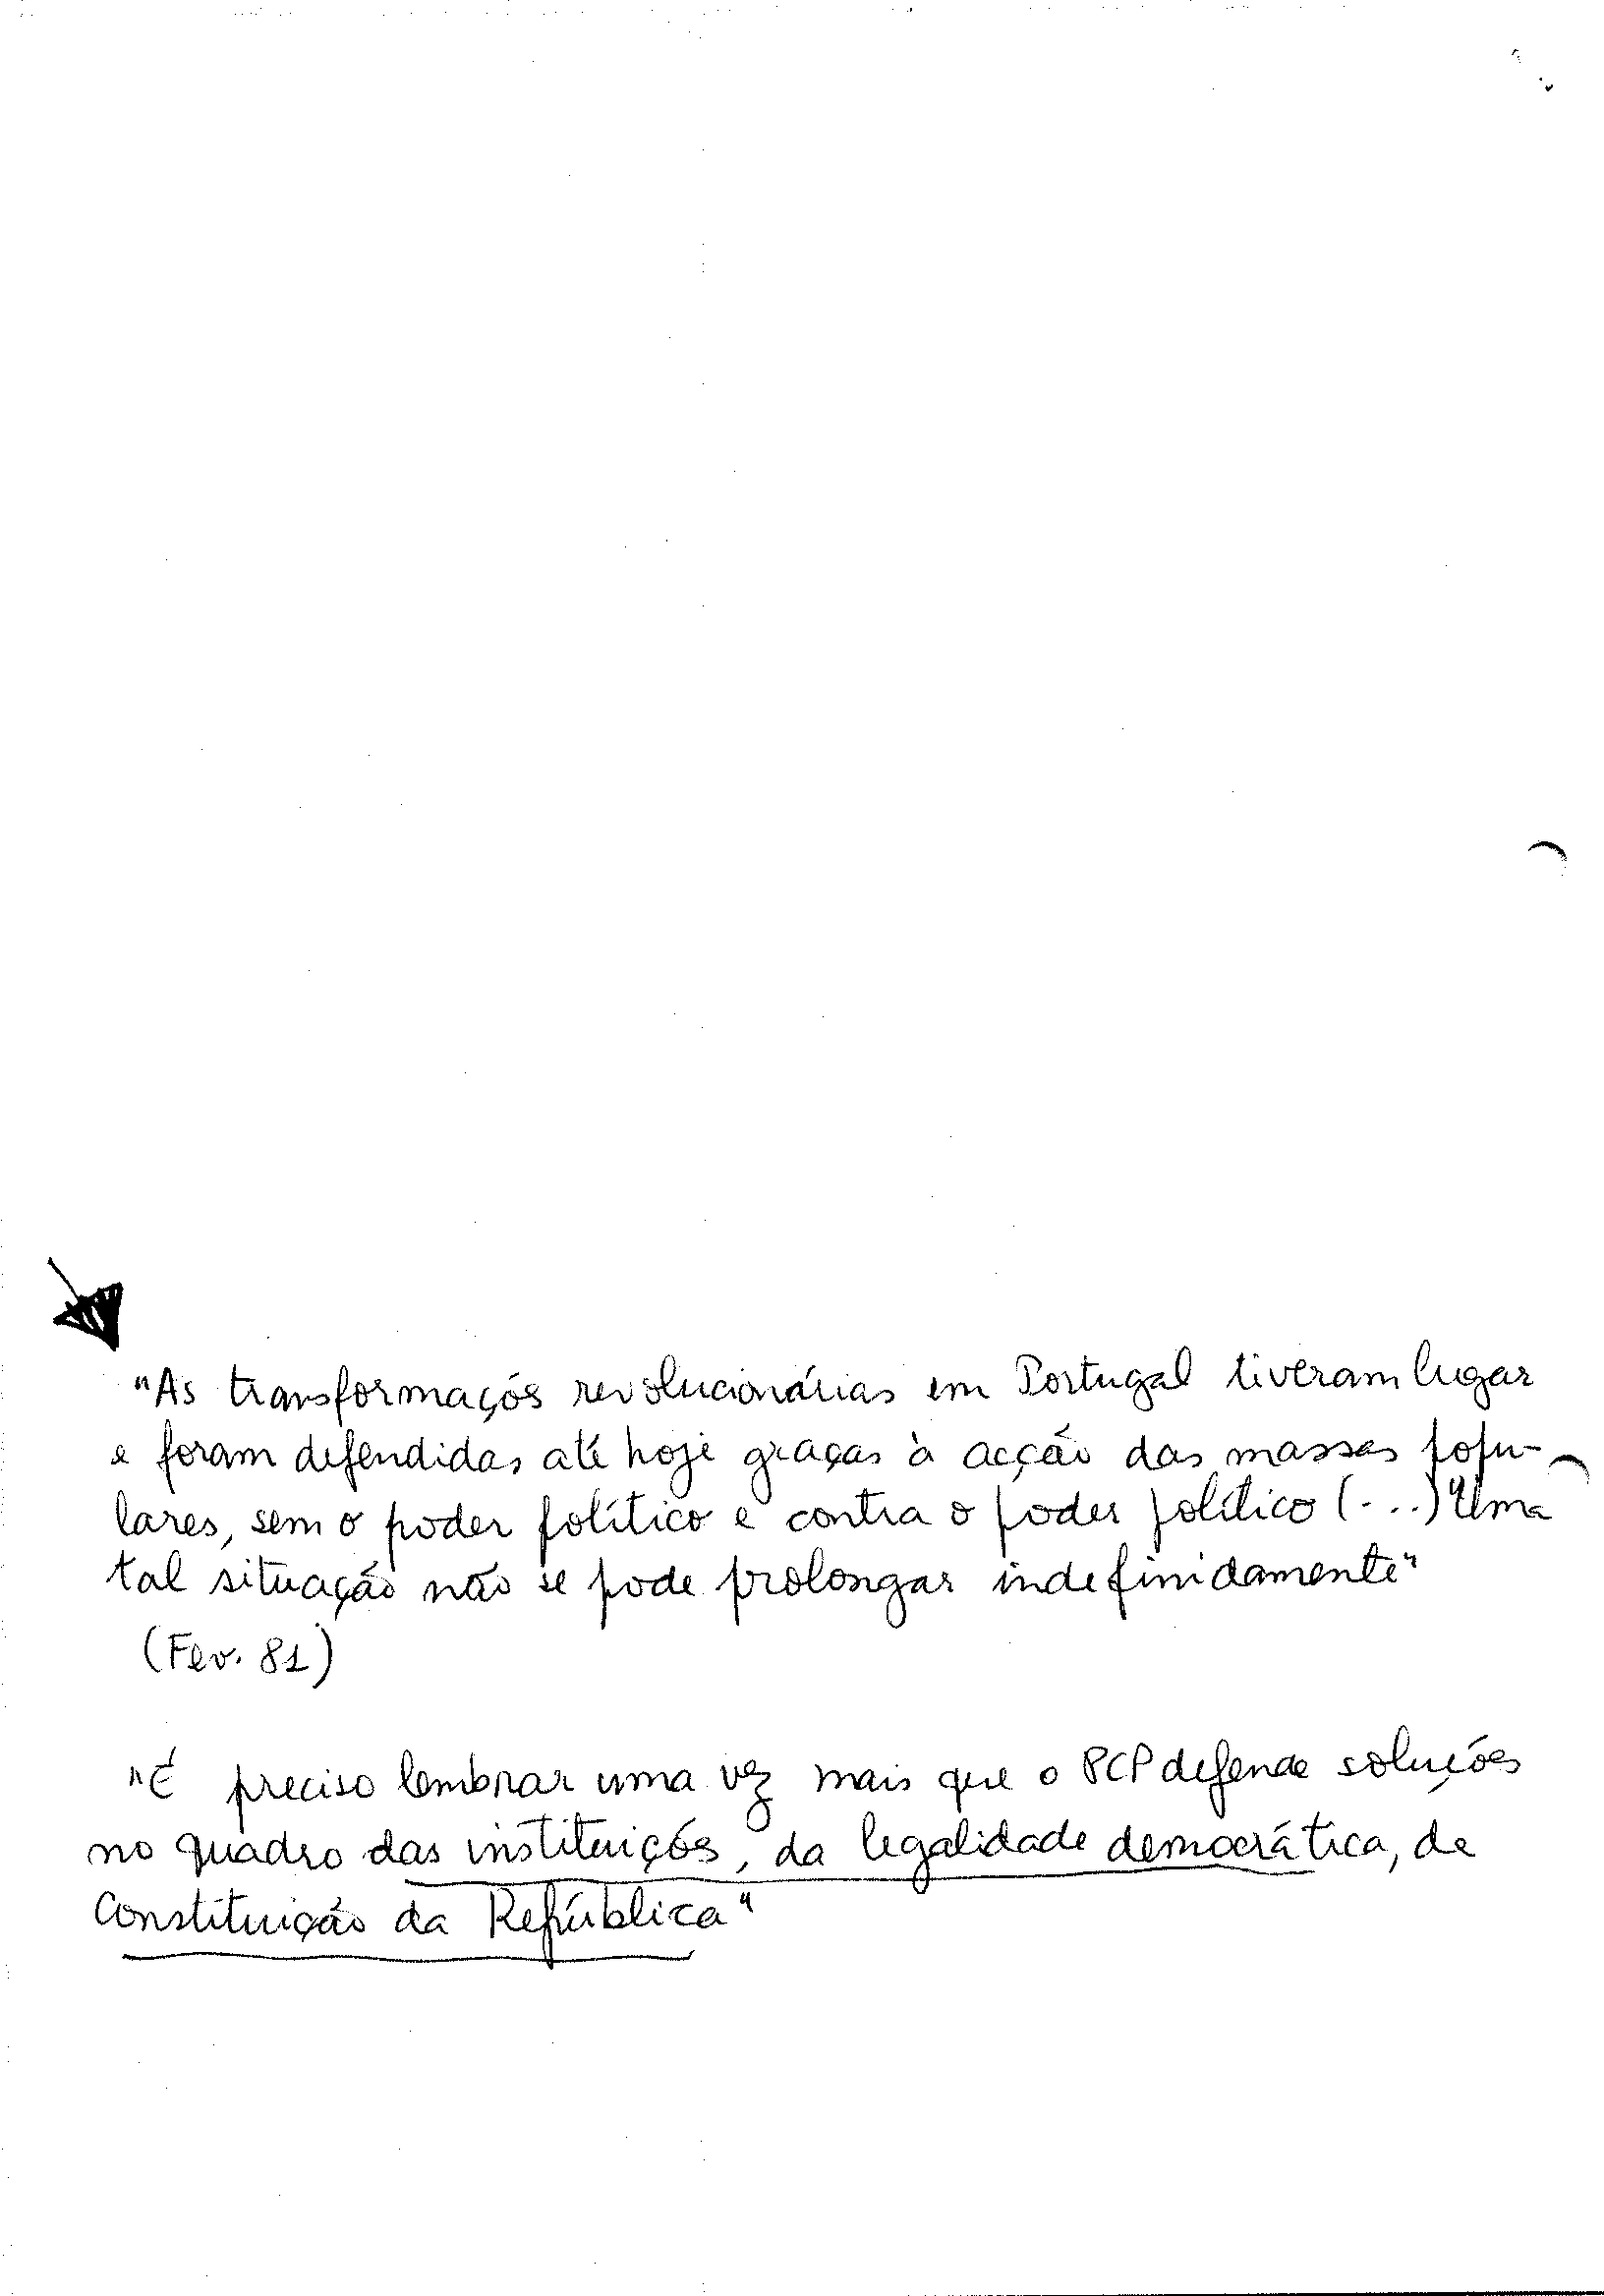 "As transformações revolucionárias em Portugal tiveram lugar
e foram defendidas até hoje graças à acção das massas popu-
lares, sem o poder político e contra o poder político (...) "Uma
tal situação não se pode prolongar indefinidamente"
(Fev. 81)
"É preciso lembrar uma vez mais que o PCP defende soluções
no quadro das instituições, da legalidade democrática, da
Constituição da República"